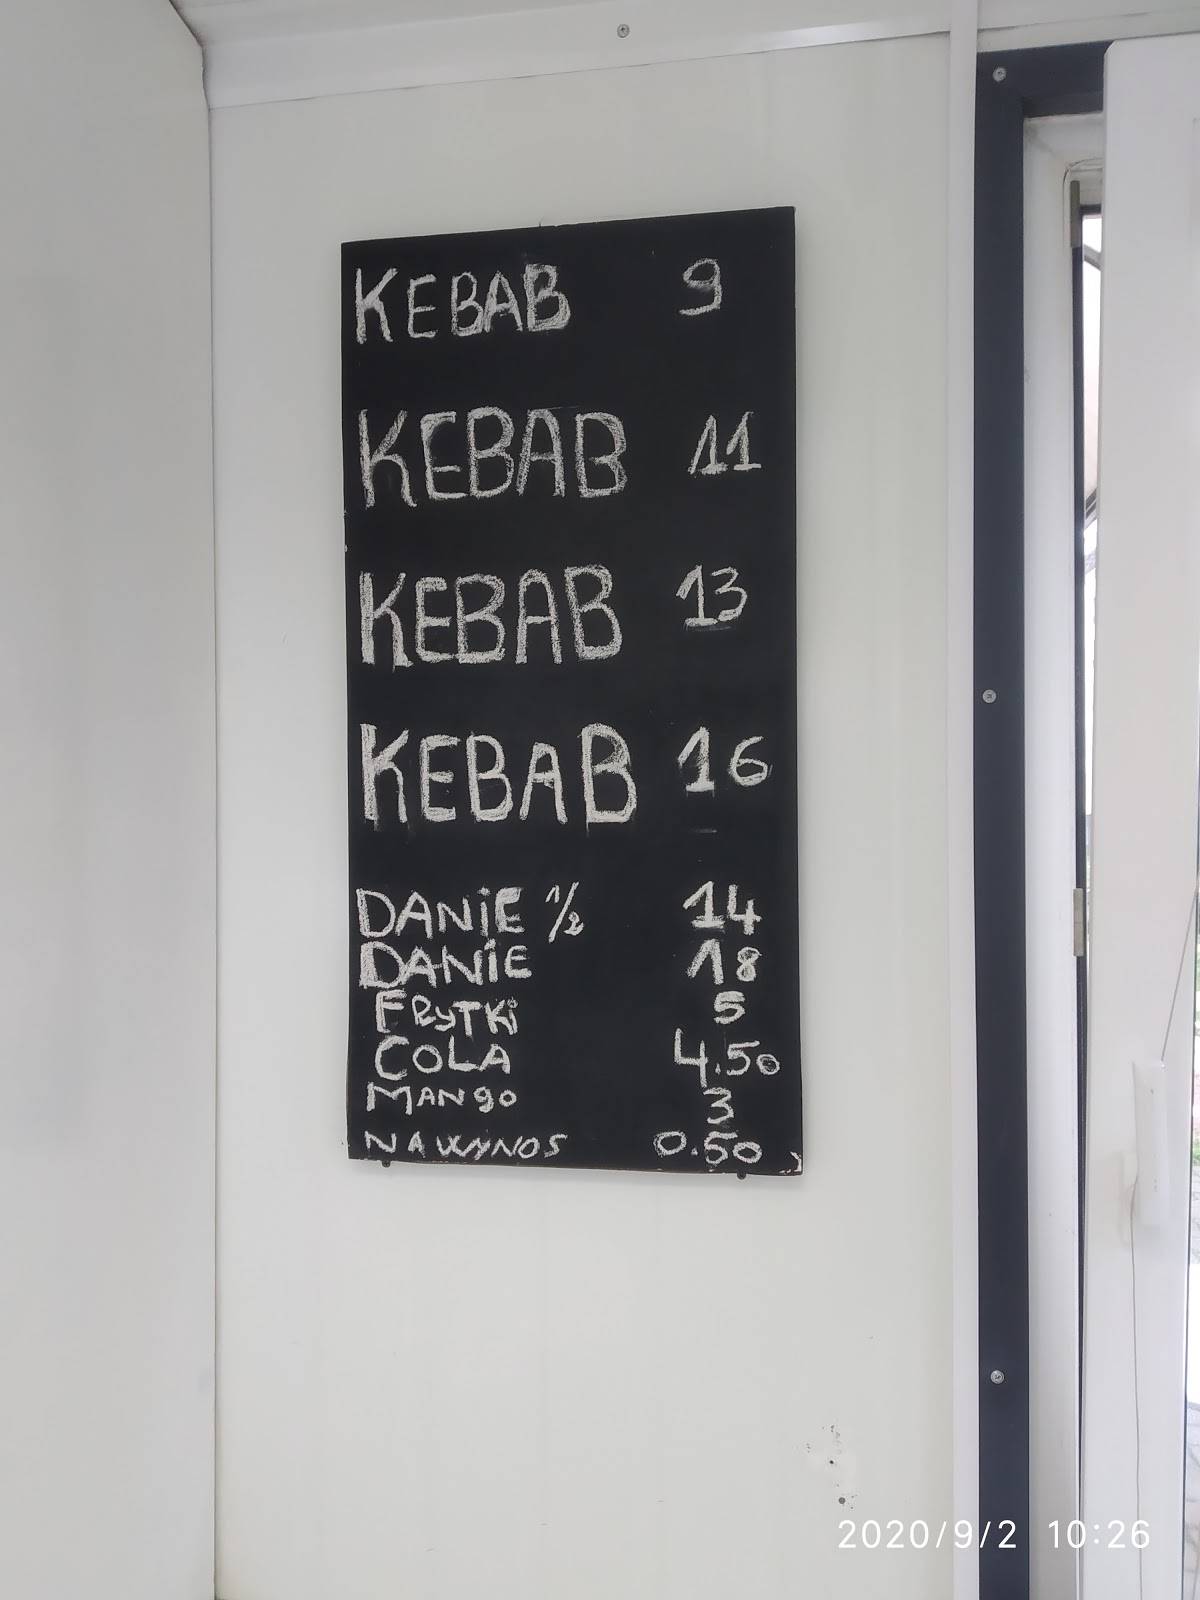 KEBAB 9
KEBAB 11
KEBAB 13
KEBAB 16
DANiE 1/2 14
DANiE 18
FRyTKi 5
COLA 4.50
MANgO 3
NA WYNOS 0.50
2020/9/2 10:26